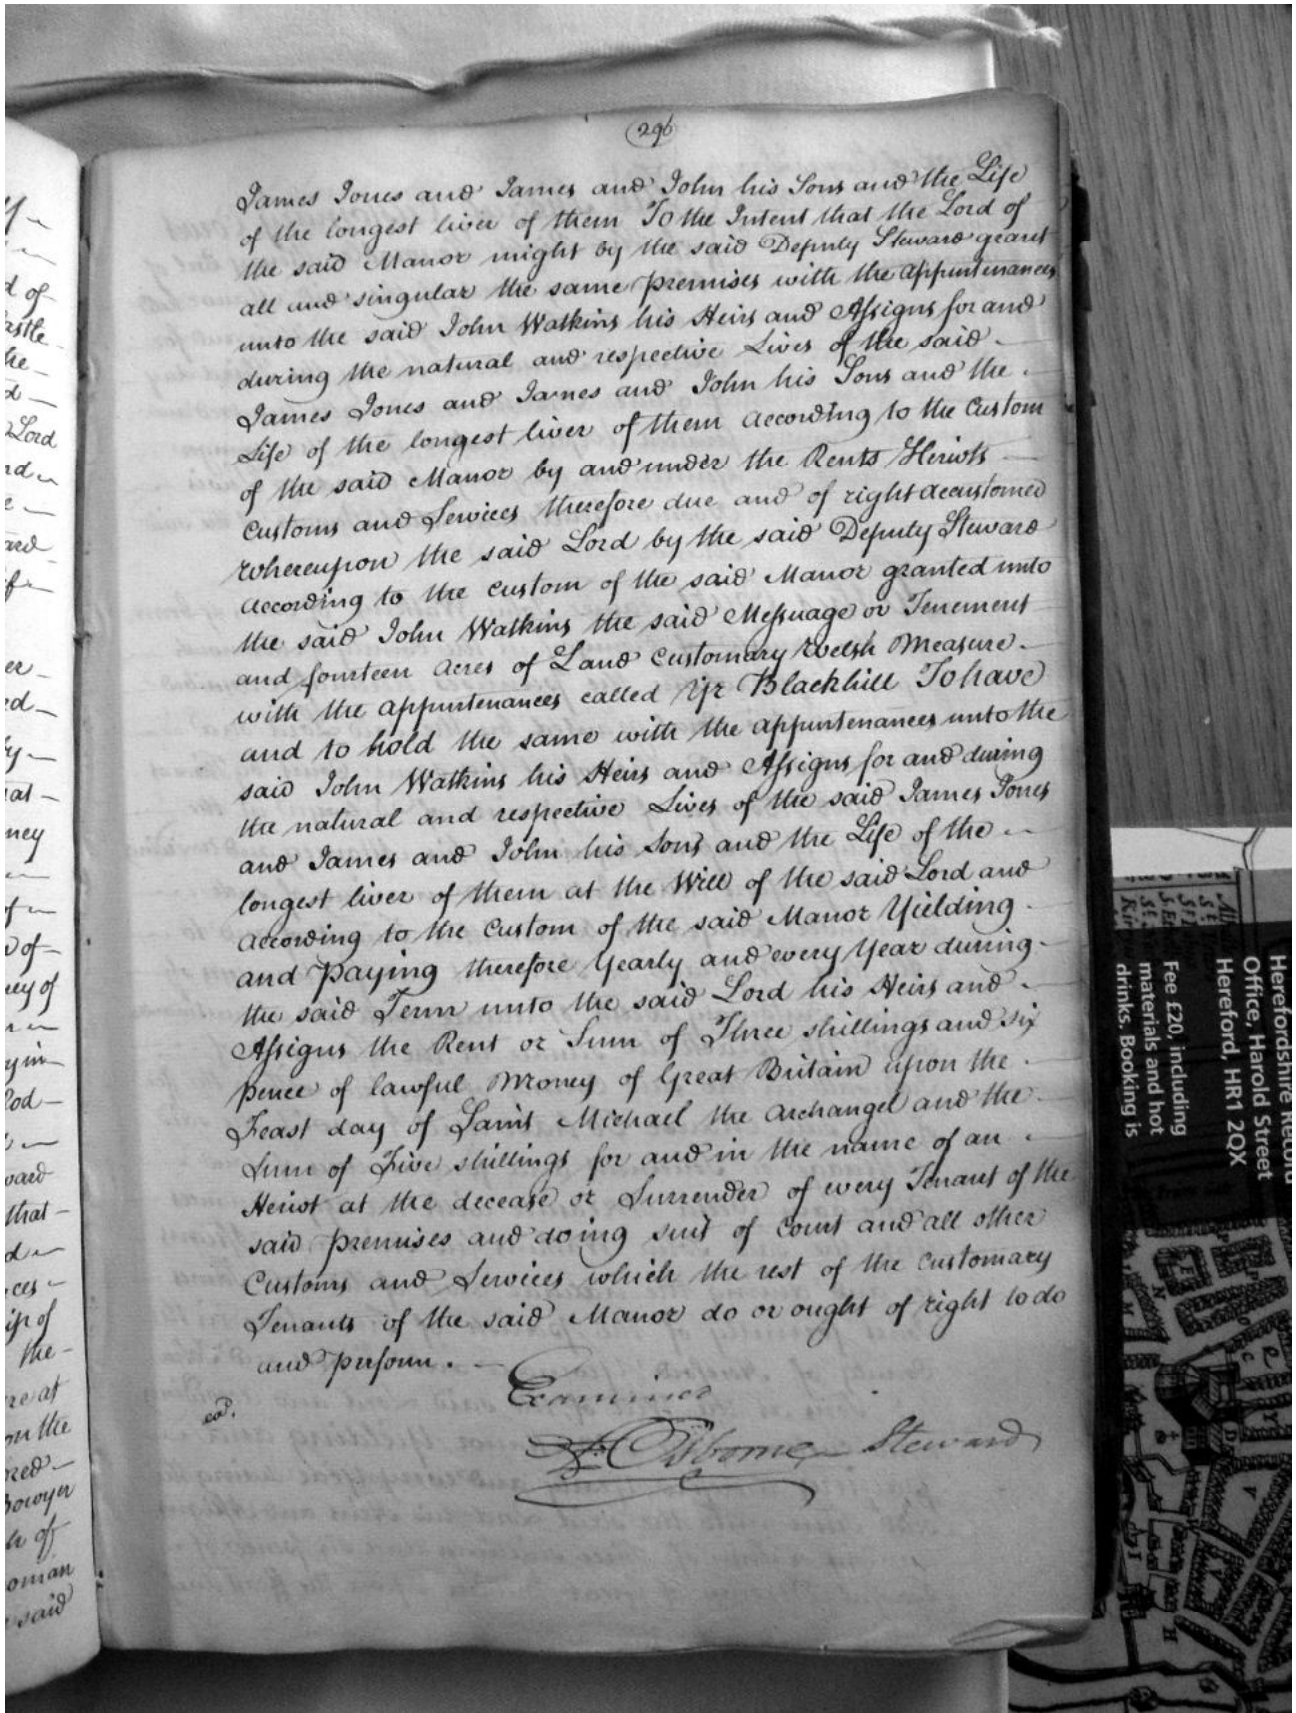 296
James Jones and James and John his Sons and the Life
of the longest liver of them To the Intent that the Lord of
the said Manor might by the said Deputy Steward grant
all and singular the same premises with the appurtenances
unto the said John Watkins his Heirs and Assigns for and
during the natural and respective Lives of the said
James Jones and James and John his Sons and the
Life of the longest liver of them according to the Custom
of the said Manor by and under the Rents Heriots
Customs and Services therefore due and of right accustomed
whereupon the said Lord by the said Deputy Steward
according to the custom of the said Manor granted unto
the said John Watkins the said Messuage or Tenement
and fourteen acres of Land Customary Welsh Measure
with the appurtenances called Blackhill To have
and to hold the same with the appurtenances unto the
said John Watkins his Heirs and Assigns for and during
the natural and respective Lives of the said James Jones
and James and John his Sons and the Life of the
longest liver of them at the Will of the said Lord and
according to the Custom of the said Manor Yielding
and paying therefore Yearly and every Year during
the said Term unto the said Lord his Heirs and
Assigns the Rent or Sum of Three shillings and six
pence of lawful Money of Great Britain upon the
Feast day of Saint Michael the Archangel and the
Sum of Five shillings for and in the name of an
Heriot at the decease or Surrender of every Tenant of the
said premises and doing suit of Court and all other
Customs and Services which the rest of the customary
Tenants of the said Manor do or ought of right to do
and perform.
Examined
Osborne Steward
Herefordshire Record
Office, Harold Street
Hereford, HR1 2QX
Fee £20, including
materials and hot
drinks. Booking is